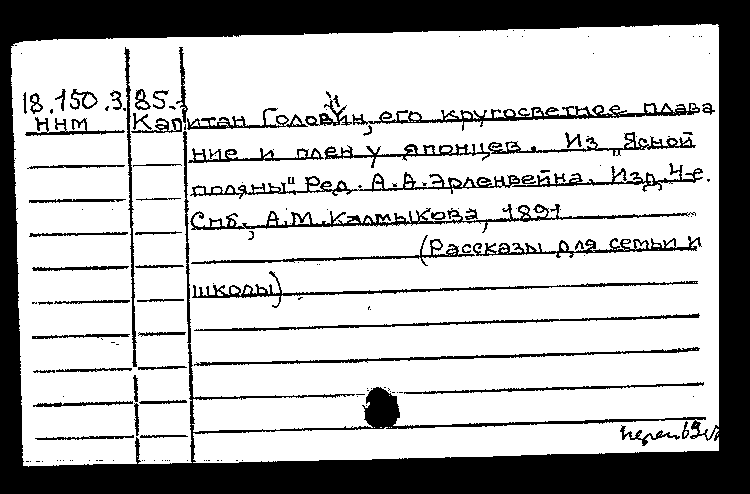 18.150.3.85.
ннм Капитан Головин, его кругосветное плава
ние и плен у японцев. Из „Ясной
поляны" Ред. А.А.Эрленвейна. Изд. 4-е.
Спб., А.М.Калмыкова, 1891
(Рассказы для семьи и
школы)